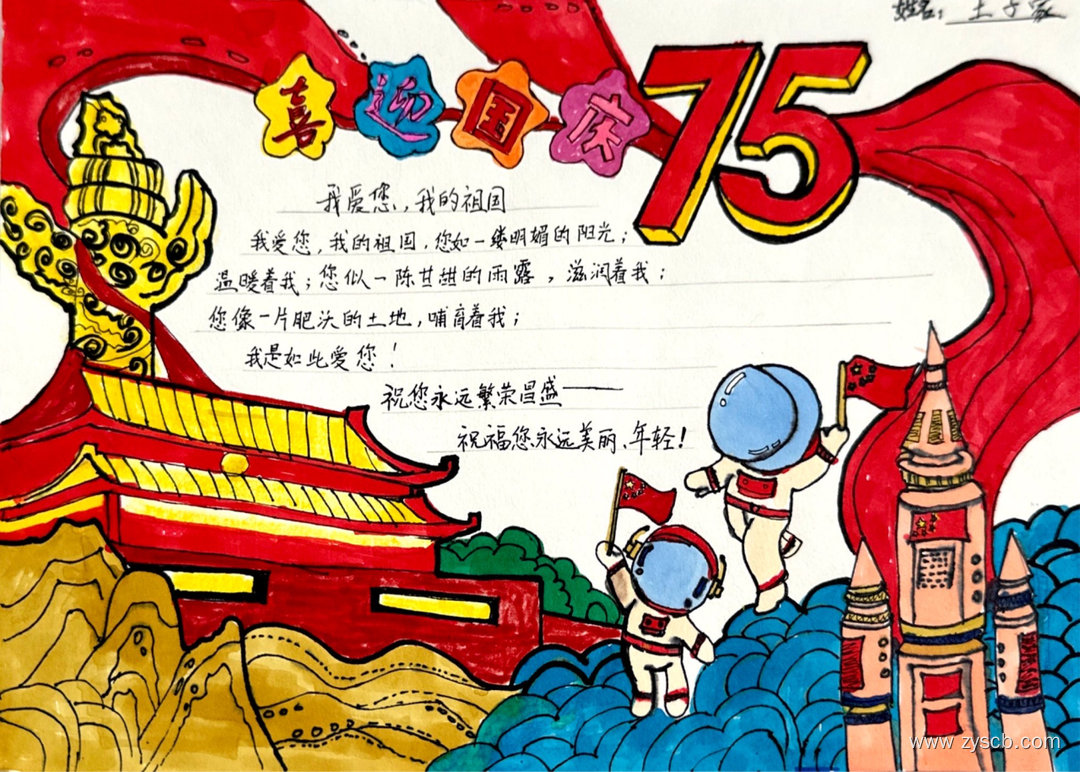 姓名：王子家
喜迎国庆
75
我爱您，我的祖国
我爱您，我的祖国，您如一缕明媚的阳光；
温暖着我；您似一陈甘甜的雨露，滋润着我；
您像一片肥沃的土地，哺育着我；
我是如此爱您！
祝您永远繁荣昌盛——
祝福您永远美丽、年轻！
www.zyscb.com